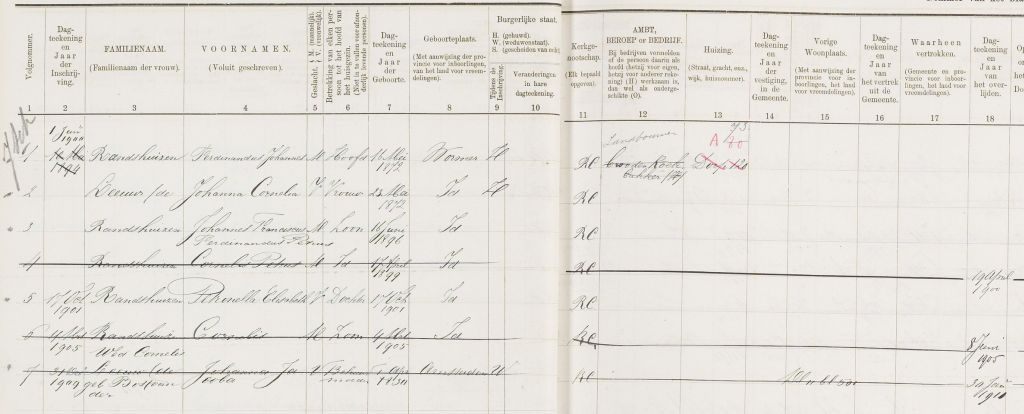 Volgnommer.
Dag-
teekening
en
Jaar
der
Inschrij-
ving.
FAMILIENAAM.
(Familienaam der vrouw).
VOORNAMEN.
(Voluit geschreven).
Geslacht.
M. (mannelijk).
V. (vrouwelijk).
Betrekking van elken per-
soon tot het hoofd van
het huisgezin.
Dag-
teekening
en
Jaar
der
Geboorte.
Geboorteplaats.
(Met aanwijzing der
provincie voor inboorlin-
gen, van het land voor vreem-
delingen).
Burgerlijke staat.
H. (gehuwd).
W. (weduwenstaat).
S. (gescheiden van echt).
Tijdens de
Inschrijving.
Veranderingen
in hare
dagteekening.
Kerkge-
nootschap.
(Elk bepaald
opgeven).
AMBT,
BEROEP or BEDRIJF.
Bij bedrijven vermelden
of de persoon daarin als
hoofd (hetzij voor eigen,
hetzij voor anderer reke-
ning) (H) werkzaam is,
dan wel als onderge-
schikte (O).
Huizing.
(Straat, gracht, enz.,
wijk, huisnommer).
Dag-
teekening
en
Jaar
der
vestiging,
in de
Gemeente.
Vorige
Woonplaats.
(Met aanwijzing der
provincie voor in-
boorlingen, het land
voor vreemdelingen).
Dag-
teekening
en
Jaar
van het
vertrek
uit de
Gemeente.
Waarheen
vertrokken.
(Gemeente en pro-
vincie voor inboor-
lingen, het land
voor vreemdelingen).
Dag-
teekening
en
Jaar
van het
over-
lijden.
1 2 3 4 5 6 7 8 9 10 11 12 13 14 15 16 17 18
1 Juni
1900
1894
1 Randshuizen Ferdinandus Johannes M Hoofd 18 Mei
1872 Wormer H RC
Landbouwer
Brooden Koek
bakker (H)
73
A 80
Dorp 120
2 Leeuw / de Johanna Cornelia V Vrouw 23 Mei
1872 Id H RC
3 Randshuizen Johannes Franciscus
Ferdinandus Petrus M Zoon Juni
1896 Id RC
4 Randshuizen Cornelis Petrus M Id 17 April
1899 Id RC 19 April
1900
5 17 Oct
1901 Randshuizen Petronella Elisabeth V Dochter 17 Oct
1901 Id RC
6 4 Mrt
1905 Randshuizen Cornelis M Zoon 4 Mrt
1905 Id RC 8 Juni
1905
Wed Cornelis
7 1909 Leeuw / de
geb
Johanna
Jacoba V Amsterdam W RC 30 Juni
1910